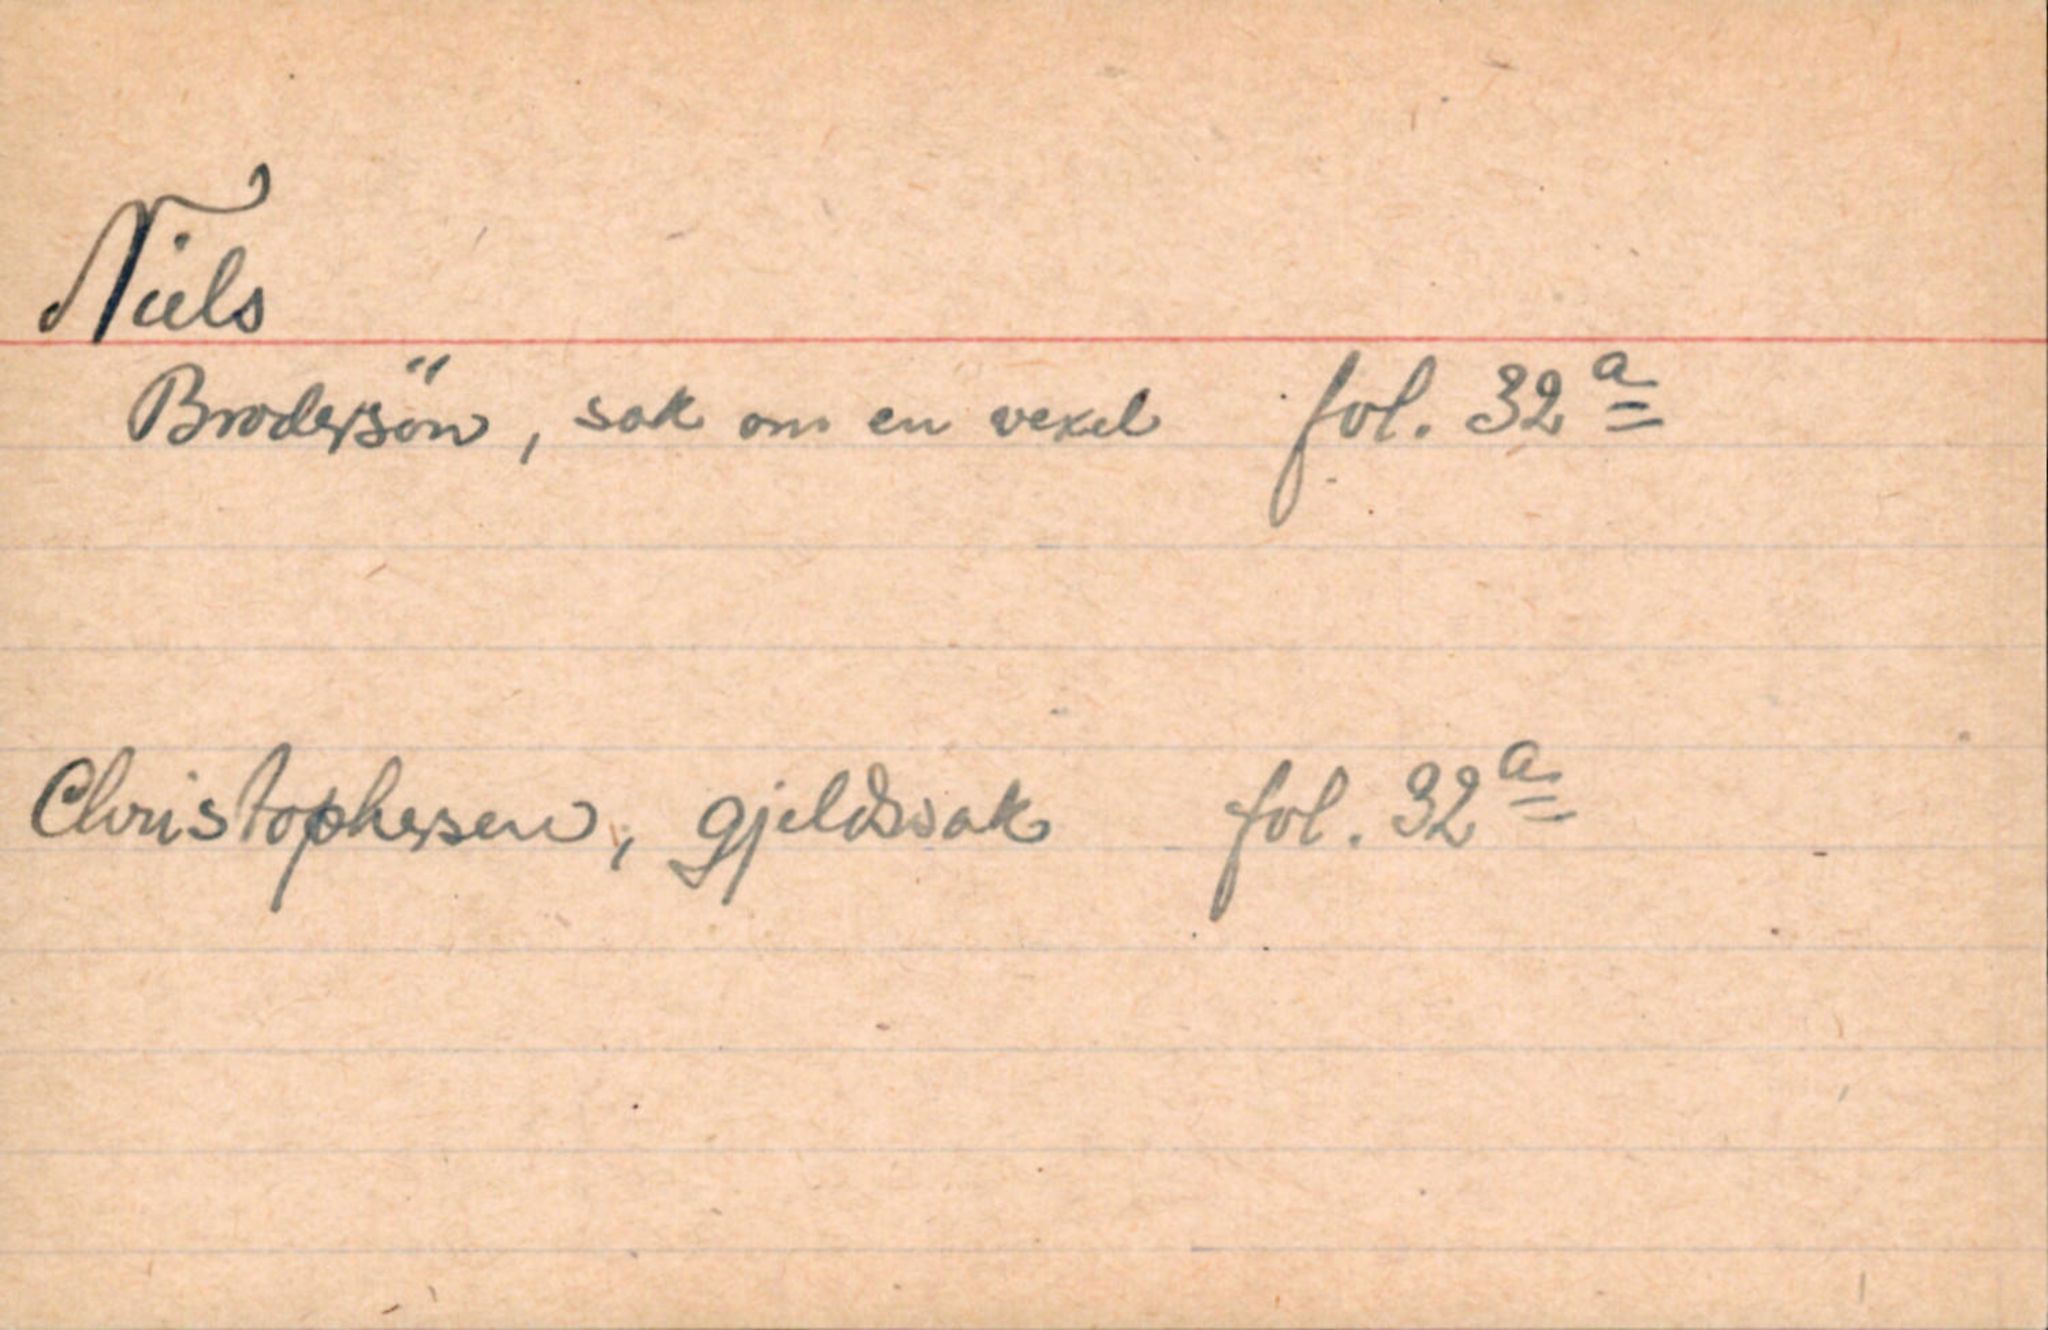 Niels
Brodersön, sak om en vexel fol. 32a
Christophersen, gjeldssak fol. 32a